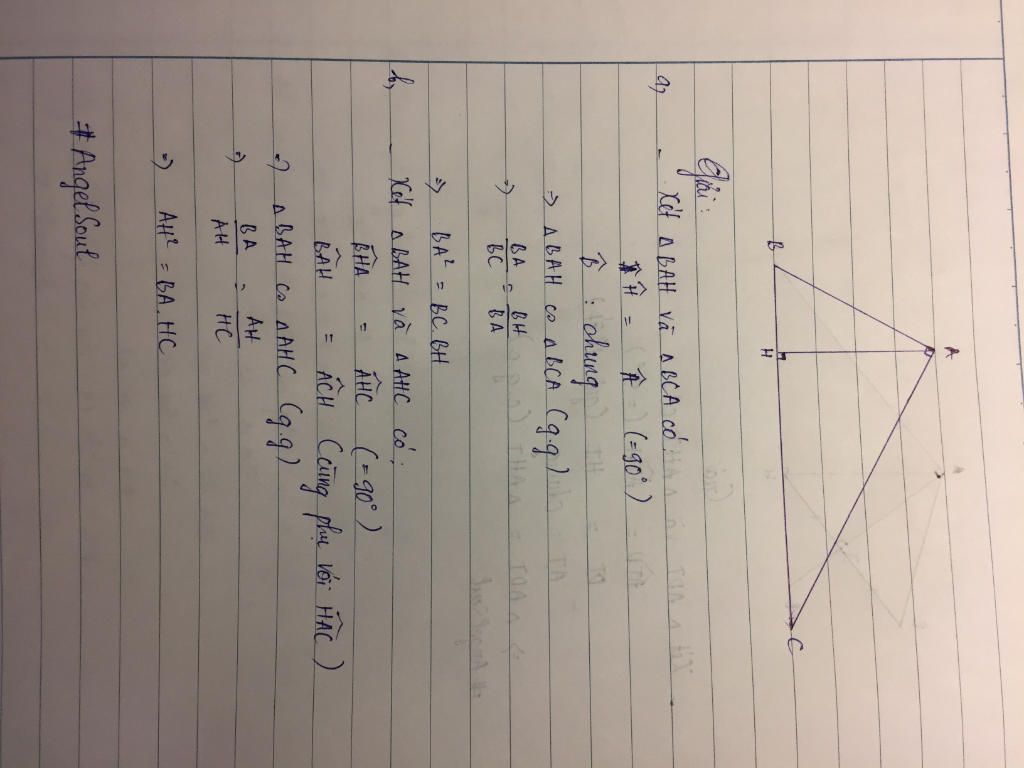 A
B
H
C
Giải:
a, - Xét ΔBAH và ΔBCA có
Ĥ = Â (=90°)
B̂ : chung
=> ΔBAH ∽ ΔBCA (g.g)
=> BA/BC = BH/BA
=> BA² = BC.BH
b, - Xét ΔBAH và ΔAHC có:
BĤA = AĤC (=90°)
BÂH = AĈH (cùng phụ với HÂC)
=> ΔBAH ∽ ΔAHC (g.g)
=> BA/AH = AH/HC
=> AH² = BA.HC
#AngelSoul